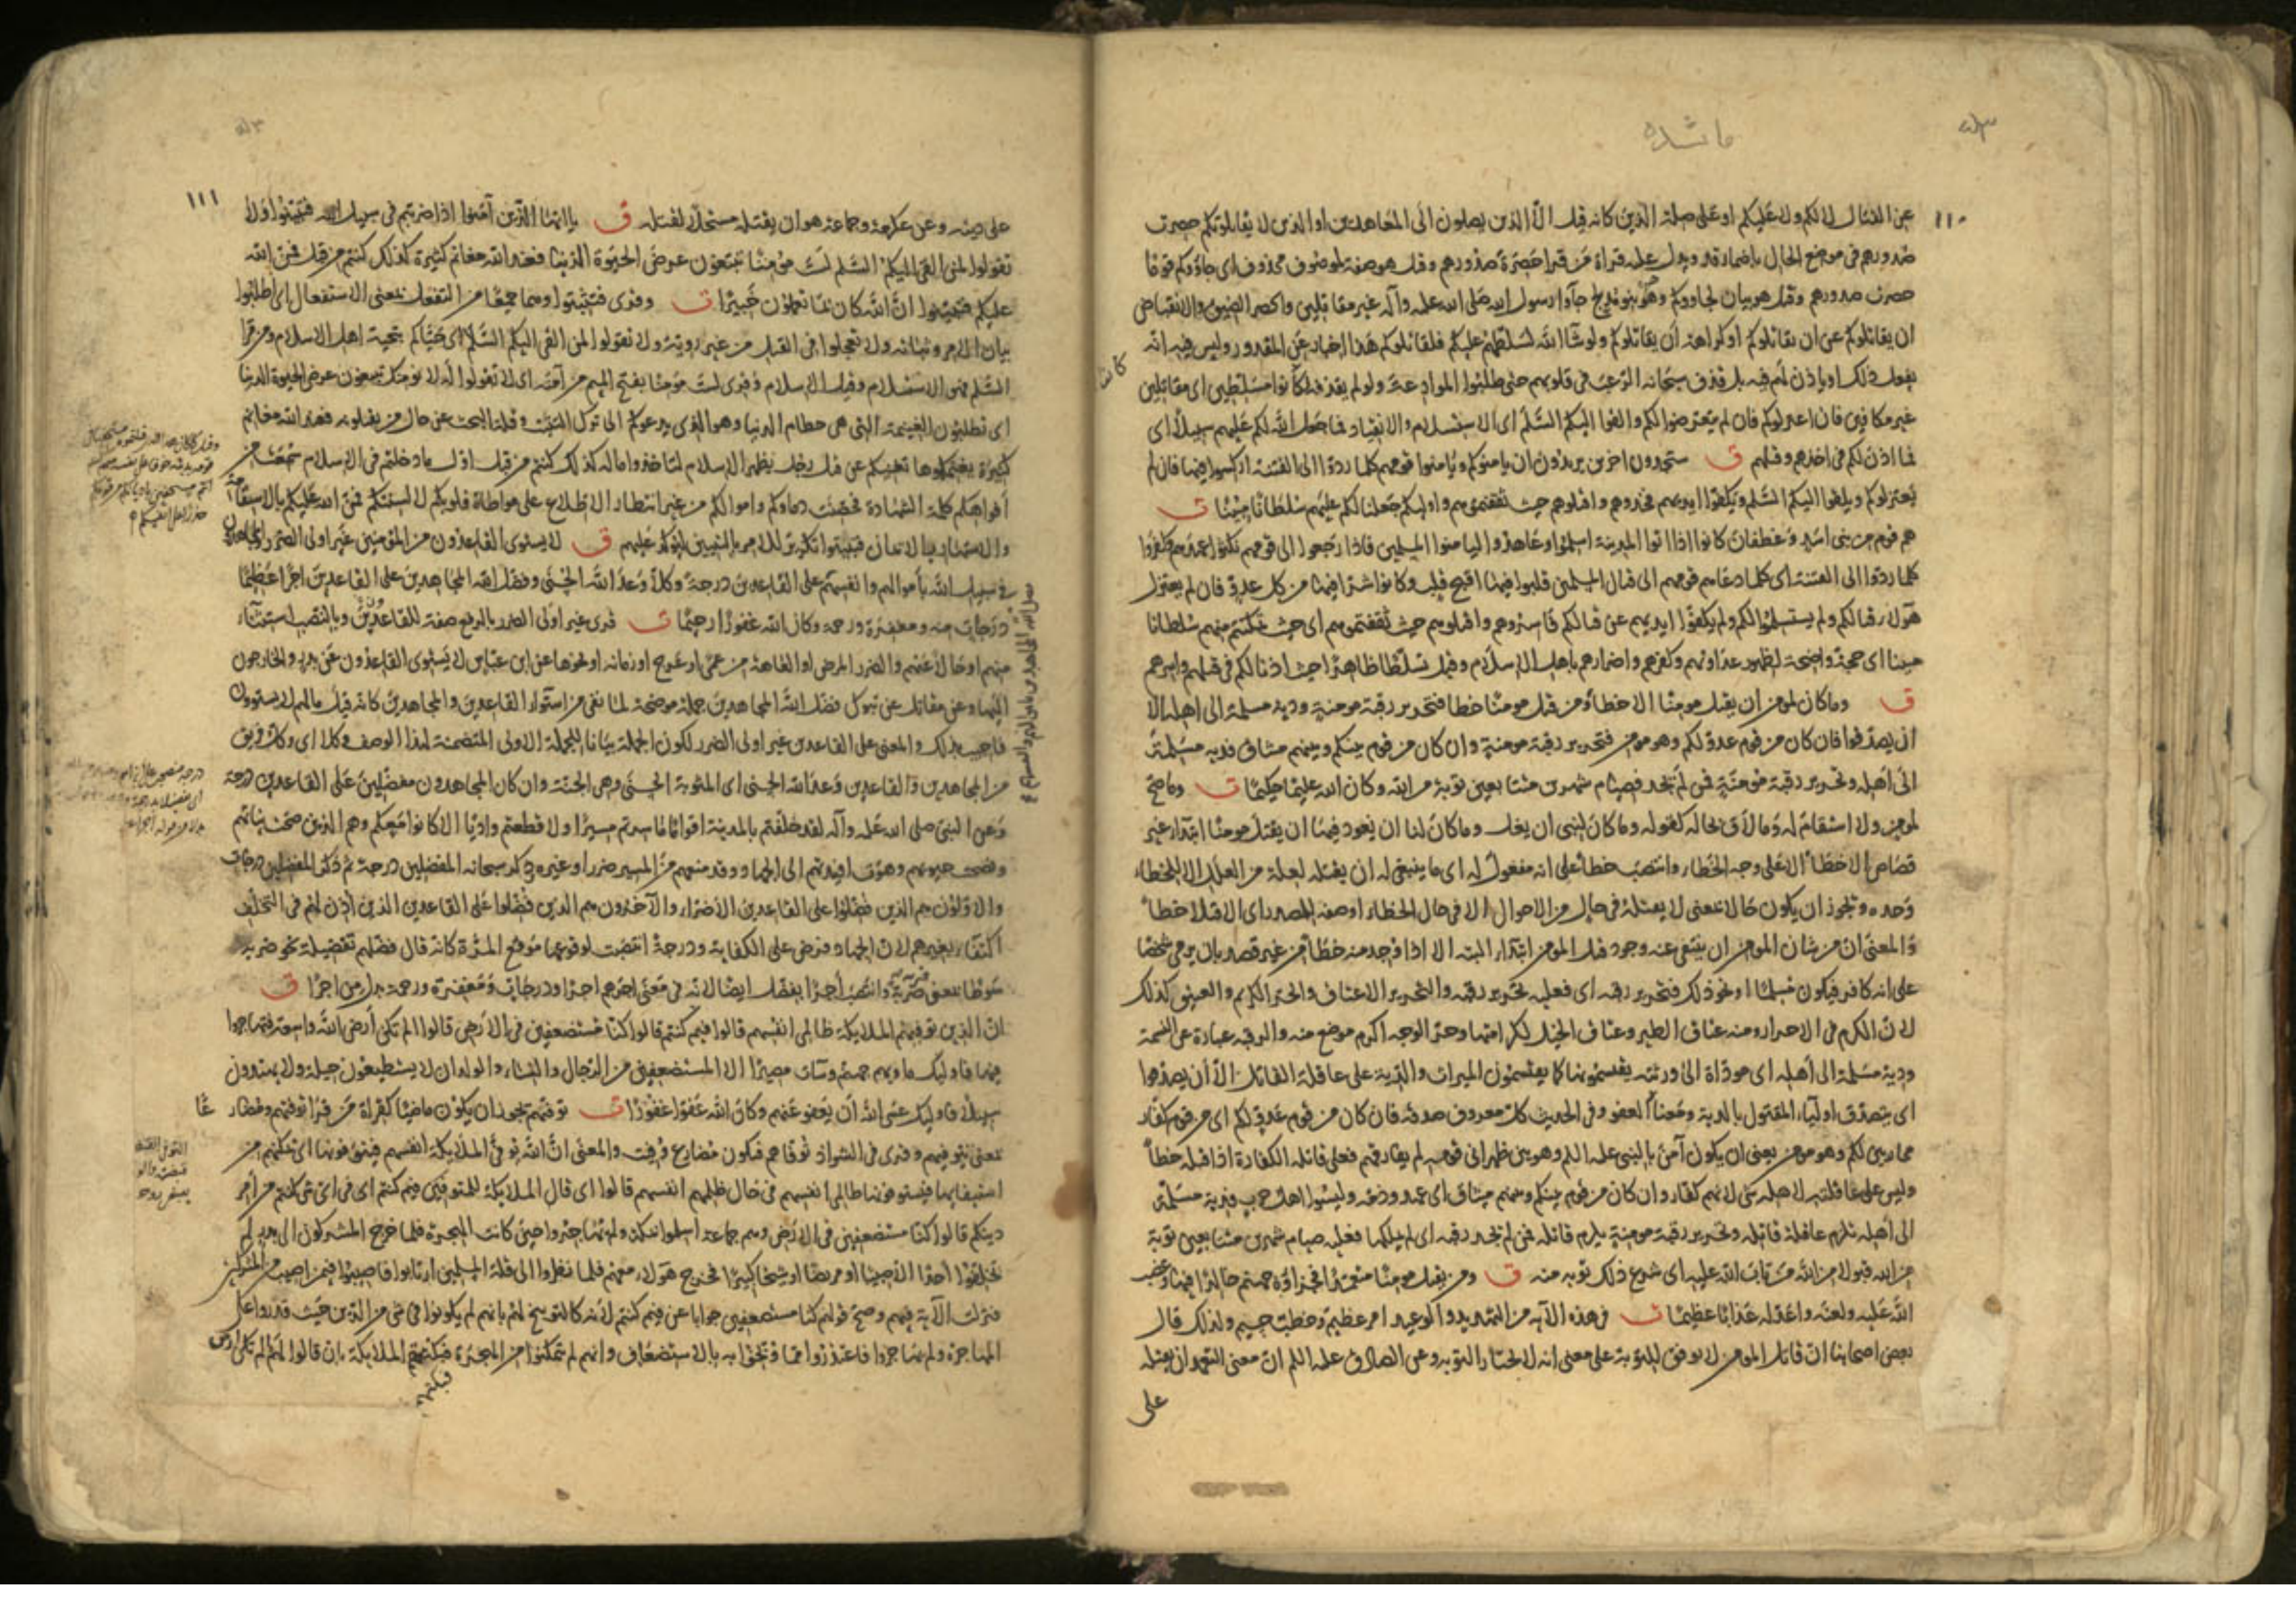 ١١٠
عن القتال لا لكم ولا عليكم او على صلة الذين كانه قيل الا الذين يصلون الى المعاهدين او الذين لا يقاتلونكم حصرت
صدورهم في موضع الحال باضمار قد ويدل عليه قراة من قرا حصرة صدورهم وقيل هو صفة لموصوف محذوف اى جاؤوكم قوما
حصرت صدورهم وقيل هو بيان لجاءوكم وهم بنو مدلج جاؤا رسول الله صلى الله عليه وآله غير مقاتلين والحصر الضيق والانقباض
ان يقاتلوكم عن ان يقاتلوكم او كراهة ان يقاتلوكم ولو شآ الله لسلطهم عليكم فلقاتلوكم هذا اخبار عن المقدور وليس فيه انه
يفعل ذلك او ياذن لهم فيه بل قذف سبحانه الرعب في قلوبهم حتى طلبوا الموادعة ولو لم يقذفه لكانوا مسلطين اى مقاتلين
غير مكافين فان اعتزلوكم فان لم يتعرضوا لكم والقوا اليكم السلم اى الاستسلام والانقياد فما جعل الله لكم عليهم سبيلا اى
فما اذن لكم في اخذهم وقتلهم ق ستجدون اخرين يريدون ان يامنوكم ويامنوا قومهم كلما ردوا الى الفتنة اركسوا فيها فان لم
يعتزلوكم ويلقوا اليكم السلم ويكفوا ايديهم فخذوهم واقتلوهم حيث ثقفتموهم واوليكم جعلنا لكم عليهم سلطانا مبينا ت
هم قوم من بنى اسد وغطفان كانوا اذا اتوا المدينة اسلموا وعاهدوا ليامنوا المسلمين فاذا رجعوا الى قومهم نكثوا عهدهم وكفروا
كلما ردوا الى الفتنة اى كلما دعاهم قومهم الى قتال المسلمين قلبوا فيها اقبح قلب وكانوا شرا فيها من كل عدو فان لم يعتزل
هولاء قتالكم ولم يستسلموا لكم ولم يكفوا ايديهم عن قتالكم فاسروهم واقتلوهم حيث ثقفتموهم اى حيث تمكنتم منهم سلطانا
مبينا اى حجة واضحة لظهور عداوتهم وكفرهم واضرارهم باهل الاسلام وقيل تسلطا ظاهرا حيث اذنا لكم في قتلهم واسرهم
ق وما كان لمومن ان يقتل مومنا الا خطا ومن قتل مومنا خطا فتحرير رقبة مومنة ودية مسلمة الى اهله الا
ان يصدقوا فان كان من قوم عدو لكم وهو مومن فتحرير رقبة مومنة وان كان من قوم بينكم وبينهم ميثاق فدية مسلمة
الى اهله وتحرير رقبة مومنة فمن لم يجد فصيام شهرين متتابعين توبة من الله وكان الله عليما حكيما ت وما صح
لمومن ولا استقام له وما لاق بحاله كقوله وما كان لنبى ان يغل وما كان لنا ان نعود فيها ان يقتل مومنا ابتداء غير
قصاص الا خطأ الا على وجه الخطاء وانتصب خطأ على انه مفعول له اى ما ينبغى له ان يقتله لعلة من العلل الا للخطاء
وحده ويجوز ان يكون حالا بمعنى لا يقتله في حال من الاحوال الا في حال الخطاء او صفة للمصدر اى الا قتلا خطأ
والمعنى ان من شان المومن ان ينتفى عنه وجود قتل المومن ابتداء البتة الا اذا وجد منه خطأ من غير قصد بان يرمى شخصا
على انه كافر فيكون مسلما او نحو ذلك فتحرير رقبة اى فعليه تحرير رقبة والتحرير الاعتاق والحر الكريم والعتيق كذلك
لان الكرم في الاحرار ومنه عتاق الطير وعتاق الخيل لكرامتها وحر الوجه اكرم موضع منه والرقبة عبارة عن النسمة
ودية مسلمة الى اهله اى موداة الى ورثته يقتسمونها كما يقتسمون الميراث والدية على عاقلة القاتل الا ان يصدقوا
اى يتصدق اولياء المقتول بالدية ومعناه العفو وفي الحديث كل معروف صدقة فان كان من قوم عدو لكم اى من قوم كفار
محاربين لكم وهو مومن يعنى ان يكون آمن بالنبى عليه السلم وهو بين ظهرانى قومه لم يفارقهم فعلى قاتله الكفارة اذا قتله خطأ
وليس على عاقلته لاهله شى لانهم كفار وان كان من قوم بينكم وبينهم ميثاق اى عهد وذمة وليسوا اهل حرب فدية مسلمة
الى اهله تلزم عاقلة قاتله وتحرير رقبة مومنة يلزم قاتله فمن لم يجد رقبة اى لم يملكها فعليه صيام شهرين متتابعين توبة
من الله قبولا من الله من تاب الله عليه اى شرع ذلك توبة منه ق ومن يقتل مومنا متعمدا فجزاؤه جهنم خالدا فيها وغضب
الله عليه ولعنه واعد له عذابا عظيما ت في هذه الآية من التهديد والوعيد امر عظيم وخطب جسيم ولذلك قال
بعض اصحابنا ان قاتل المومن لا يوفق للتوبة على معنى انه لا يختار التوبة وعن الصادق عليه السلم ان معنى التعمد ان يقتله
على
١١١
على دينه وعن عكرمة وجماعة هو ان يقتله مستحلا لقتله ق يا ايها الذين آمنوا اذا ضربتم في سبيل الله فتبينوا ولا
تقولوا لمن القى اليكم السلم لست مومنا تبتغون عرض الحيوة الدنيا فعند الله مغانم كثيرة كذلك كنتم من قبل فمن الله
عليكم فتبينوا ان الله كان بما تعملون خبيرا ت وقرى فتثبتوا وهما جميعا من التفعل بمعنى الاستفعال اى اطلبوا
بيان الامر وثباته ولا تعجلوا في القتل من غير روية ولا تقولوا لمن القى اليكم السلم اى حياكم بتحية اهل الاسلام ومن قرا
السلم فهو الاستسلام وقيل الاسلام وقرى لست مومنا بفتح الميم من آمنه اى لا تقولوا له لا نومنك تبتغون عرض الحيوة الدنيا
اى تطلبون الغنيمة التى هى حطام الدنيا وهو الذى يدعوكم الى ترك التثبت وقلة البحث عن حال من يقتلونه فعند الله مغانم
كثيرة يغنمكموها تغنيكم عن قتل رجل يظهر الاسلام لتاخذوا ماله كذلك كنتم من قبل اول ما دخلتم في الاسلام سمعت من
افواهكم كلمة الشهادة فحصنت دماوكم واموالكم من غير انتظار الاطلاع على مواطاة قلوبكم لالسنتكم فمن الله عليكم بالاستقامة
والاشتهار بالايمان فتبينوا تكرير للامر بالتبيين ليؤكد عليهم ق لا يستوى القاعدون من المومنين غير اولى الضرر والمجاهدون
في سبيل الله باموالهم وانفسهم على القاعدين درجة وكلا وعد الله الحسنى وفضل الله المجاهدين على القاعدين اجرا عظيما
درجات منه ومغفرة ورحمة وكان الله غفورا رحيما ت قرى غير اولى الضرر بالرفع صفة للقاعدون وبالنصب استثناء
منهم او حالا عنهم والضرر المرض او العاهة من عمى او عرج او زمانة او نحوها عن ابن عباس لا يستوى القاعدون عن بدر والخارجون
اليها وعن مقاتل عن تبوك فضل الله المجاهدين جملة موضحة لما نفى من استواء القاعدين والمجاهدين كانه قيل ما لهم لا يستوون
فاجيب بذلك والمعنى على القاعدين غير اولى الضرر لكون الجملة بيانا للجملة الاولى المتضمنة لهذا الوصف وكلا اى وكل فريق
من المجاهدين والقاعدين وعد الله الحسنى اى المثوبة الحسنى وهى الجنة وان كان المجاهدون مفضلين على القاعدين درجة
وعن النبى صلى الله عليه وآله لقد خلفتم بالمدينة اقواما ما سرتم مسيرا ولا قطعتم واديا الا كانوا معكم وهم الذين صحت نياتهم
ونصحت جيوبهم وهوت افيدتهم الى الجهاد وقد منعهم من المسير ضرر او غيره ذكر سبحانه المفضلين درجة ثم ذكر المفضلين درجات
والاولون هم الذين فضلوا على القاعدين الاضراء والآخرون هم الذين فضلوا على القاعدين الذين اذن لهم في التخلف
اكتفاء بغيرهم لان الجهاد فرض على الكفاية ودرجة انتصبت لوقوعها موقع المرة كانه قال فضلهم تفضيلة نحو ضربه
سوطا بمعنى ضربة وانتصب اجرا بفضل ايضا لانه في معنى اجرهم اجرا ودرجات ومغفرة ورحمة بدل من اجرا ق
ان الذين توفيهم الملايكة ظالمى انفسهم قالوا فيم كنتم قالوا كنا مستضعفين في الارض قالوا الم تكن ارض الله واسعة فتهاجروا
فيها فاوليك ماويهم جهنم وسآت مصيرا الا المستضعفين من الرجال والنساء والولدان لا يستطيعون حيلة ولا يهتدون
سبيلا فاوليك عسى الله ان يعفو عنهم وكان الله عفوا غفورا ت توفيهم يجوز ان يكون ماضيا كقراة من قرا توفتهم ومضارعا
بمعنى تتوفيهم وقرى في الشواذ توفاهم فيكون مضارع وفيت والمعنى ان الله توفى الملايكة انفسهم فيتوفونها اى تمكنهم من
استيفايها فيستوفونها ظالمى انفسهم في حال ظلمهم انفسهم قالوا اى قال الملايكة للمتوفين فيم كنتم اى في اى شى كنتم من امر
دينكم قالوا كنا مستضعفين في الارض وهم جماعة اسلموا بمكة ولم يهاجروا حين كانت الهجرة فلما خرج المشركون الى بدر لم
يخلفوا احدا الا صبيا او مريضا او شيخا كبيرا فخرج هولاء معهم فلما نظروا الى قلة المسلمين ارتابوا فاصيبوا فيمن اصيب من المشركين
فنزلت الآية فيهم وصح قولهم كنا مستضعفين جوابا عن فيم كنتم لانه كالتوبيخ لهم بانهم لم يكونوا في شى من الدين حيث قدروا على
المهاجرة ولم يهاجروا فاعتذروا مما وبخوا به بالاستضعاف وانهم لم يتمكنوا من الهجرة فبكتهم الملايكة بان قالوا لهم الم تكن ارض
فبكتهم